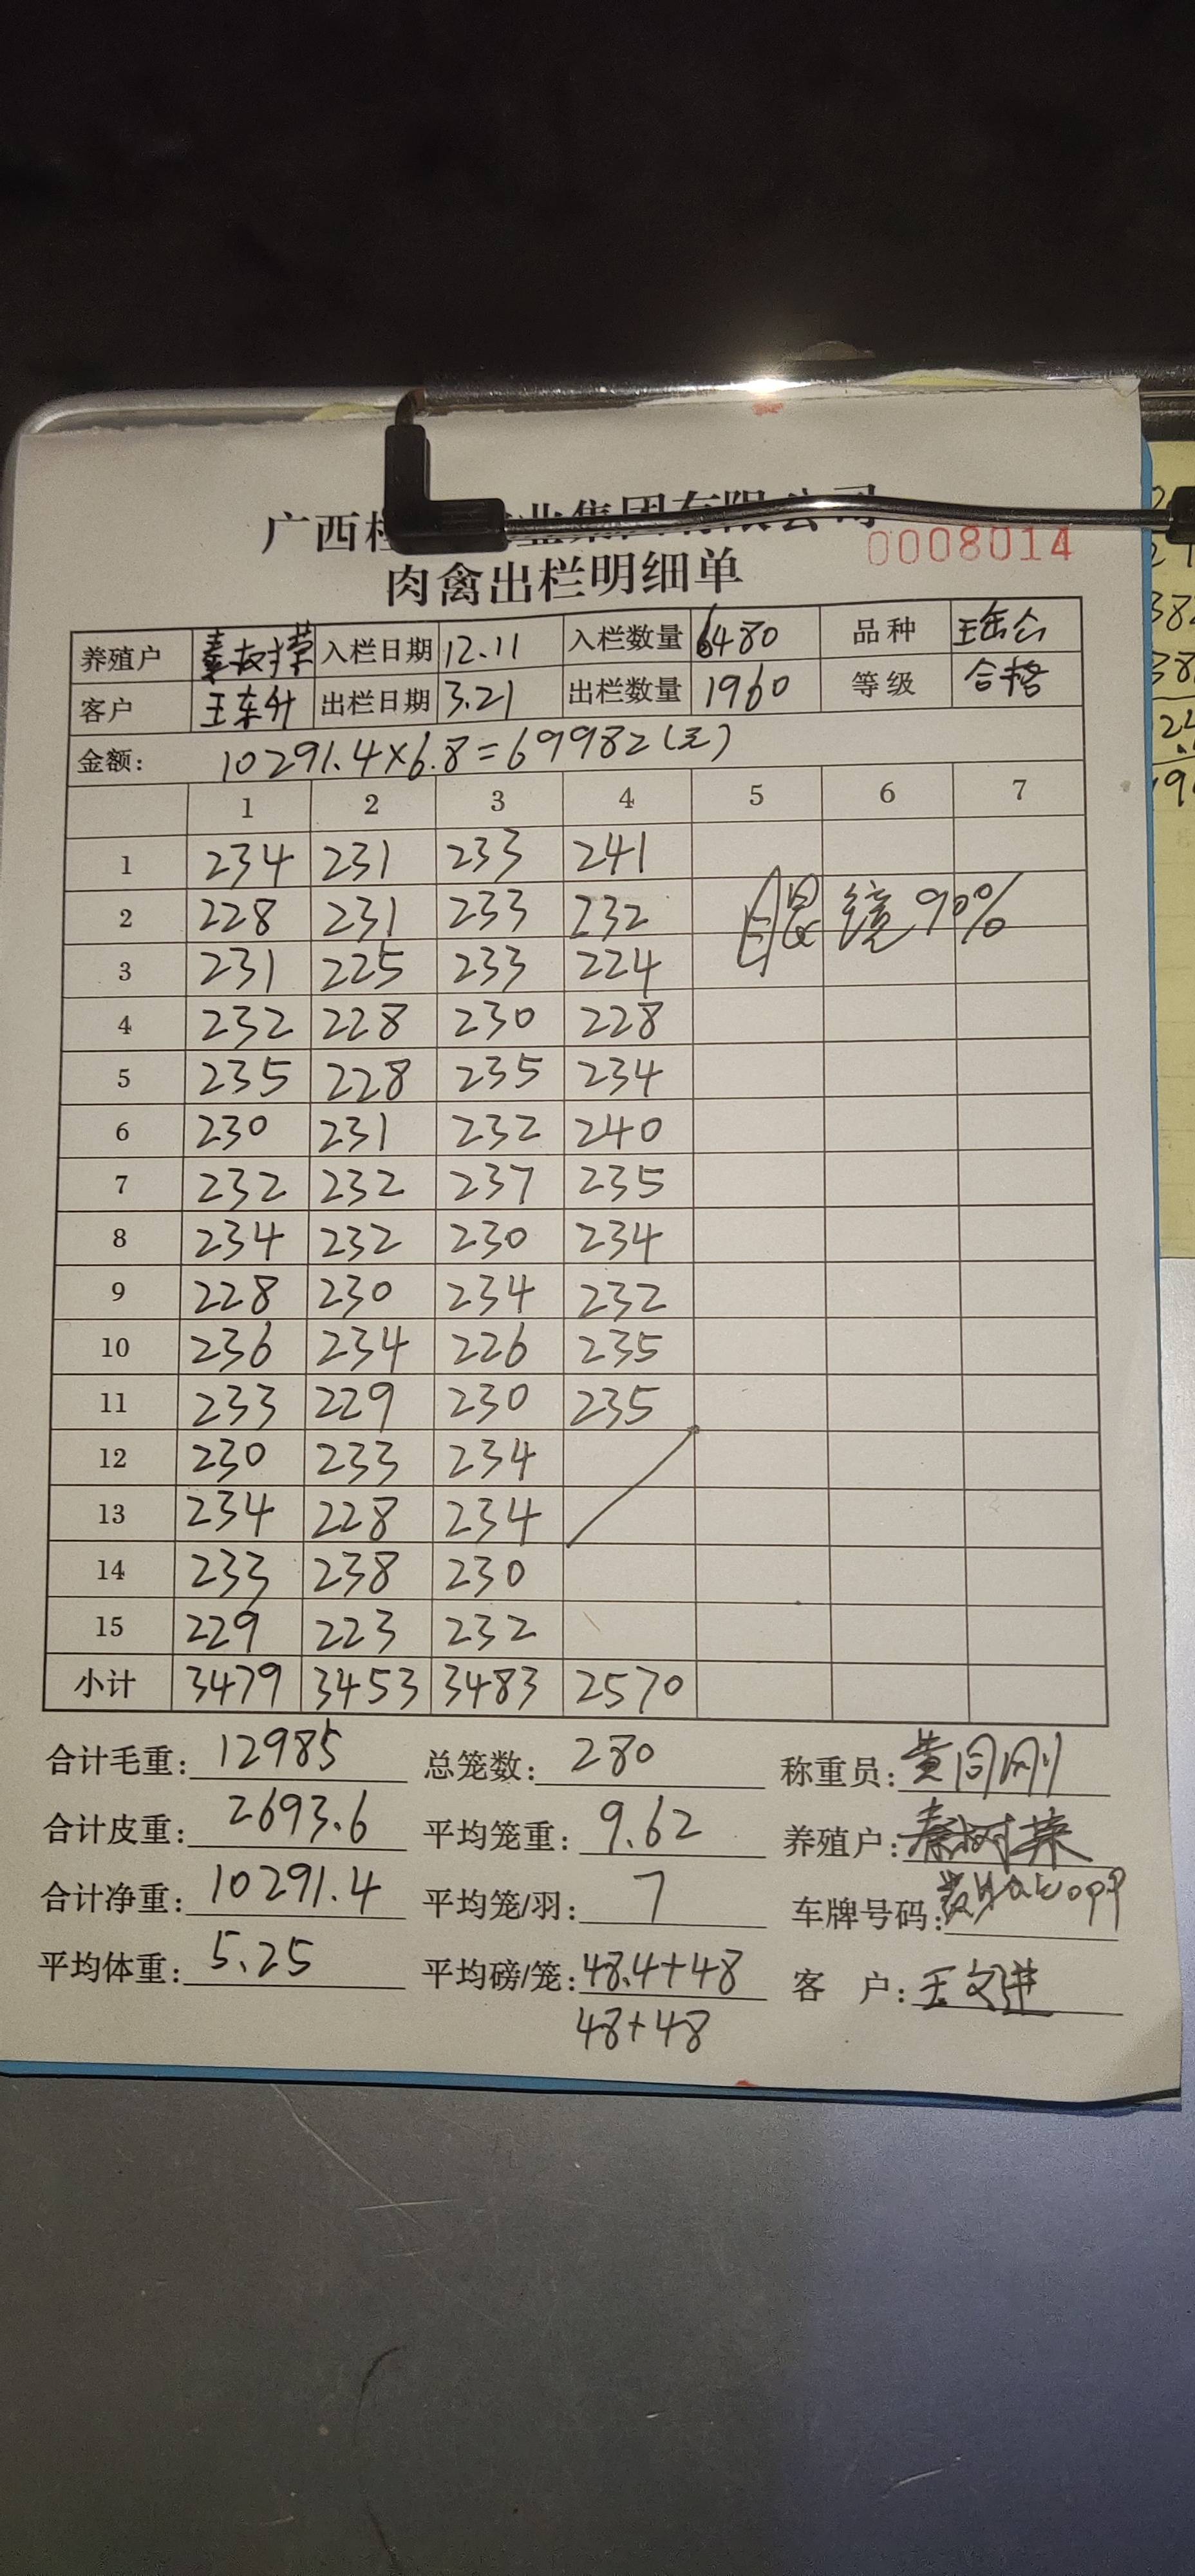 广西 业集团有限公司
0008014
肉禽出栏明细单
养殖户 秦树荣 入栏日期 12.11 入栏数量 6480 品种
客户 王东升 出栏日期 3.21 出栏数量 1960 等级 合格
金额: 10291.4×6.8=69982(元)
1 2 3 4 5 6 7
1 234 231 233 241
2 228 231 233 232 眼镜90%
3 231 225 233 224
4 232 228 230 228
5 235 228 235 234
6 230 231 232 240
7 232 232 237 235
8 234 232 230 234
9 228 230 234 232
10 236 234 226 235
11 233 229 230 235
12 230 233 234
13 234 228 234
14 233 238 230
15 229 223 232
小计 3479 3453 3483 2570
合计毛重: 12985 总笼数: 280 称重员: 黄同刚
合计皮重: 2693.6 平均笼重: 9.62 养殖户: 秦树荣
合计净重: 10291.4 平均笼/羽: 7 车牌号码:
平均体重: 5.25 平均磅/笼: 48.4+48 客 户: 王文进
48+48